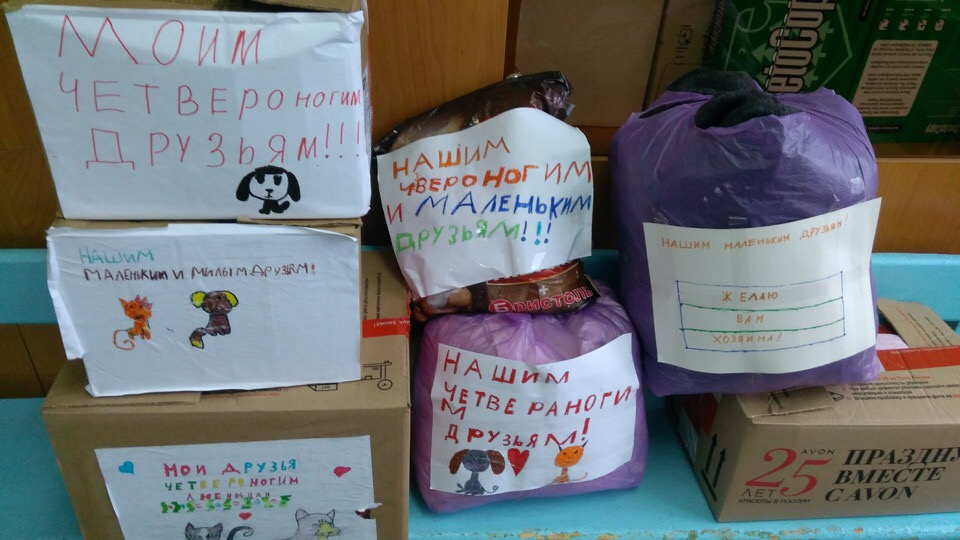 МОИМ
ЧЕТВЕРОНОГИМ
ДРУЗЬЯМ!!!
НАШИМ
МАЛЕНЬКИМ И МИЛЫМ ДРУЗЯМ!
МОИ ДРУЗЬЯ
ЧЕТВЕРОНОГИМ
НАШИМ
ЧВЕРОНОГИМ
И МАЛЕНЬКИМ
ДРУЗЬЯМ!!!
БРИСТОЛЬ
НАШИМ
ЧЕТВЕРАНОГИ
М
ДРУЗЬЯМ!
НАШИМ МАЛЕНЬКИМ ДРУЗЬЯМ!
ЖЕЛАЮ
ВАМ
ХОЗЯИНА!
AVON
25
ЛЕТ
КРАСОТЫ В РОССИИ
ПРАЗДН
ВМЕСТЕ
С AVON